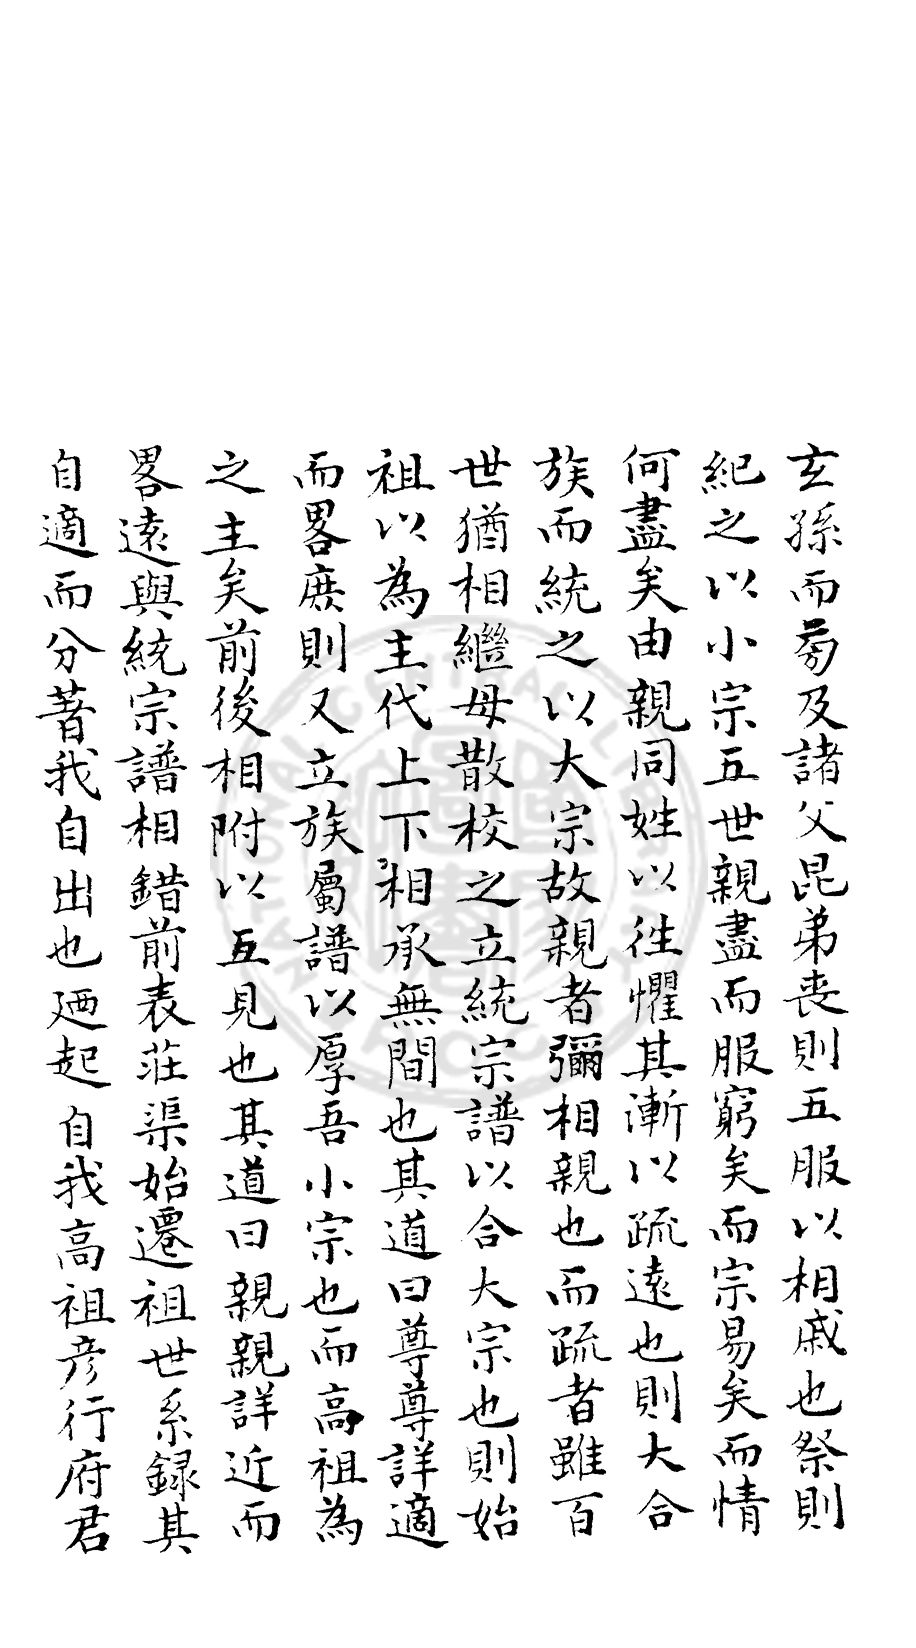 玄孫而旁及諸父昆弟喪則五服以相戚也祭則
紀之以小宗五世親盡而服窮矣而宗易矣而情
何盡矣由親同姓以徃懼其漸以疏遠也則大合
族而統之以大宗故親者彌相親也而疏者雖百
世猶相繼毋散校之立統宗譜以合大宗也則始
祖以為主代上下相承無間也其道曰尊尊詳適
而畧庶則又立族屬譜以厚吾小宗也而高祖為
之主矣前後相附以互見也其道曰親親詳近而
畧遠與統宗譜相錯前表莊渠始遷祖世系録其
自適而分著我自出也廼起自我高祖彦行府君